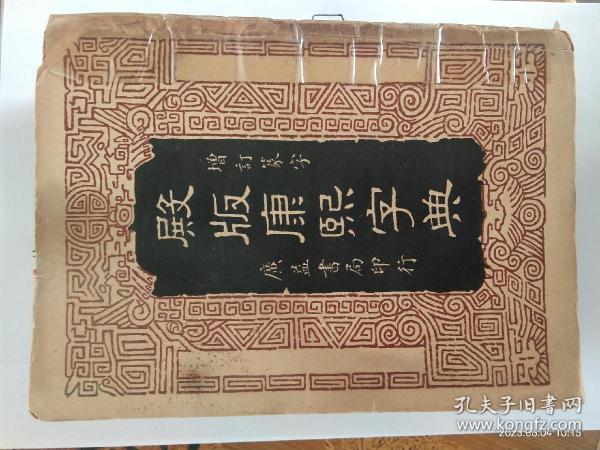 增訂篆字
殿版康熙字典
廣益書局印行
孔夫子旧書网
2023.06.04 10:15